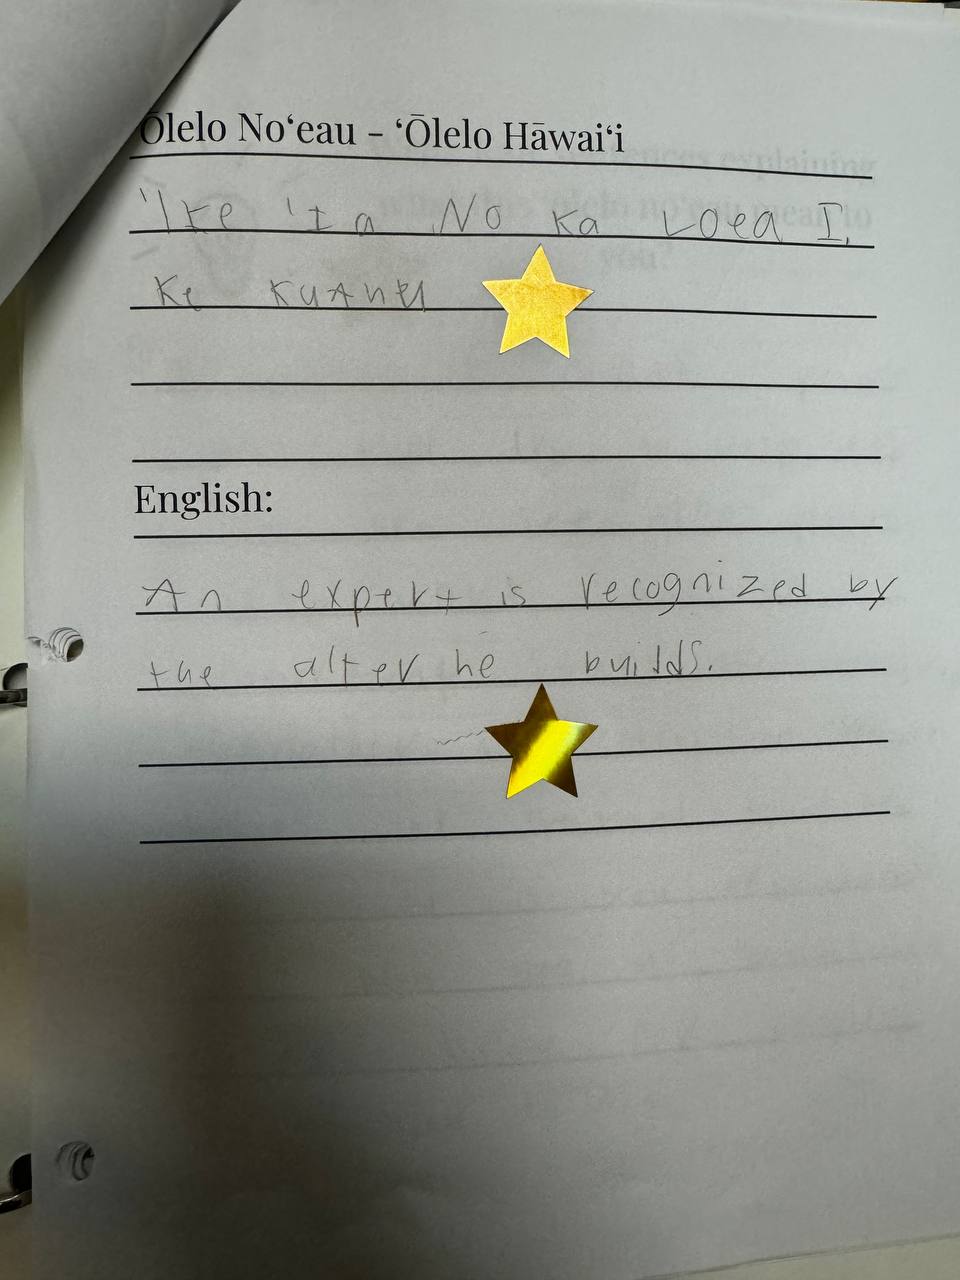 Ōlelo No‘eau - ‘Ōlelo Hāwai‘i
'Ike 'Ia No Ka Loea I
Ke Kuahu
English:
An expert is recognized by
the alter he builds.